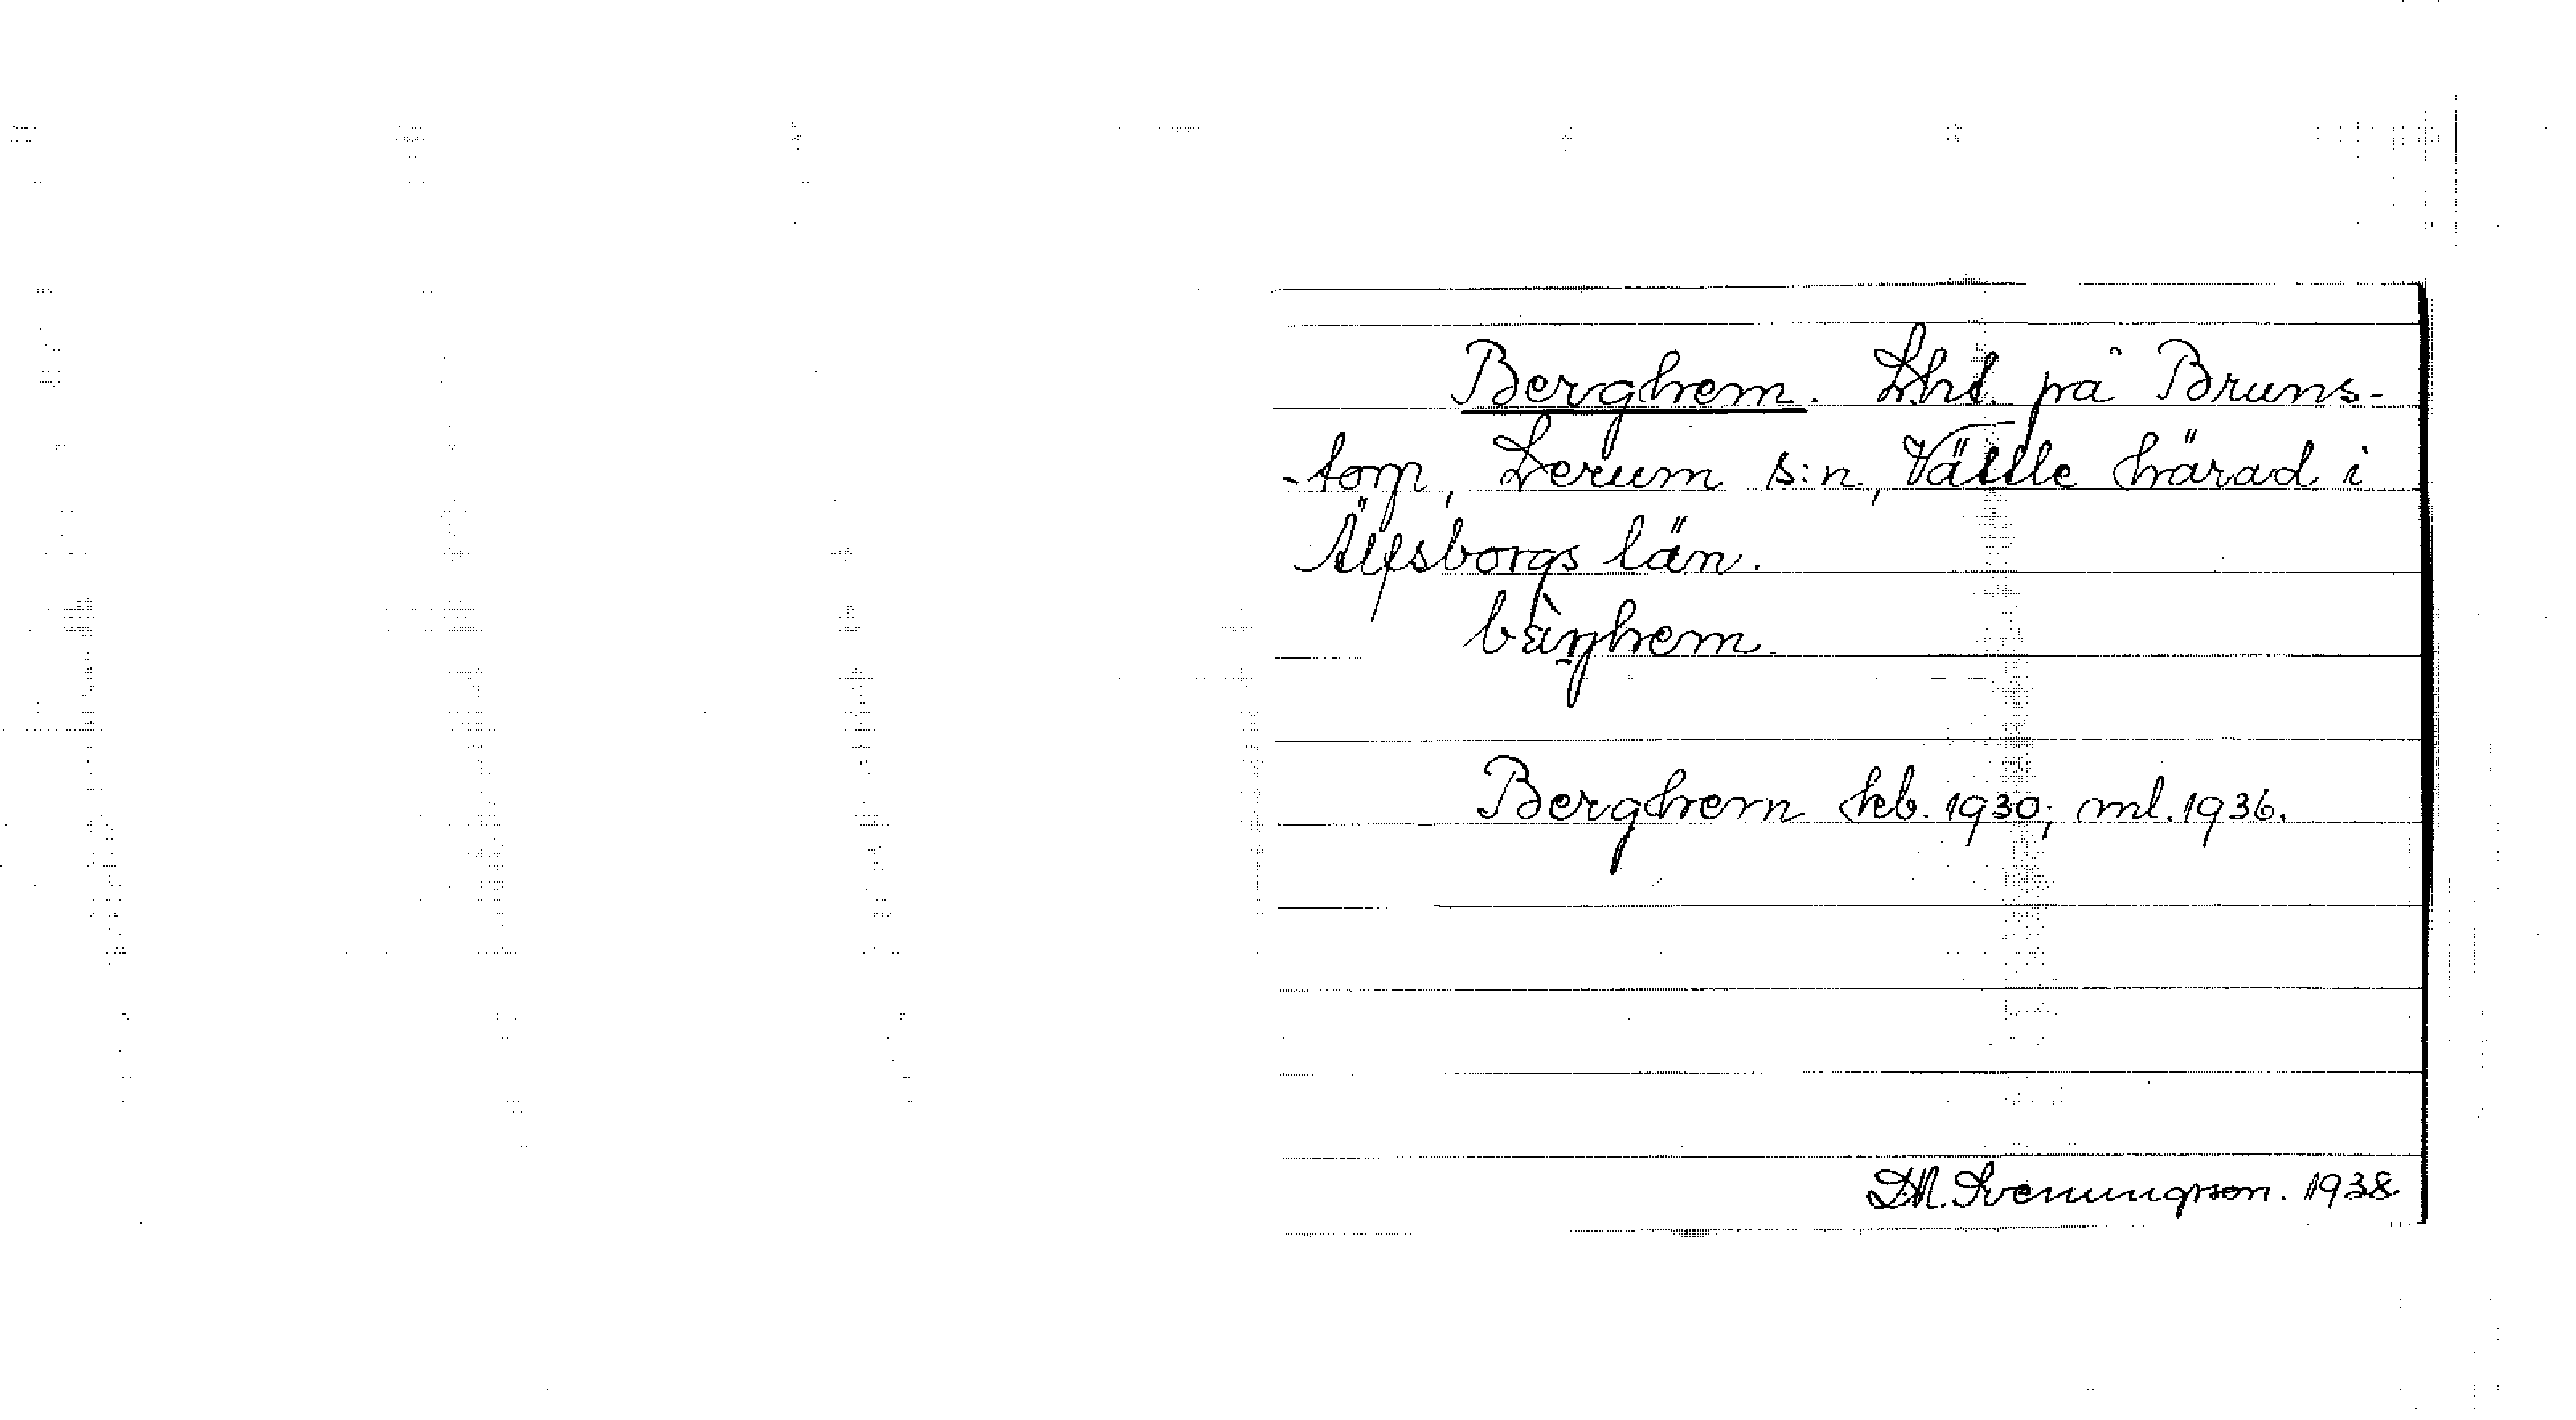 Berghem. Lht. på Bruns-
-torp, Lerum s:n, Vättle härad i
Älfsborgs län.
bàrjhem.
Berghem kb. 1930; ml. 1936.
D.M. Svenungsson. 1938.